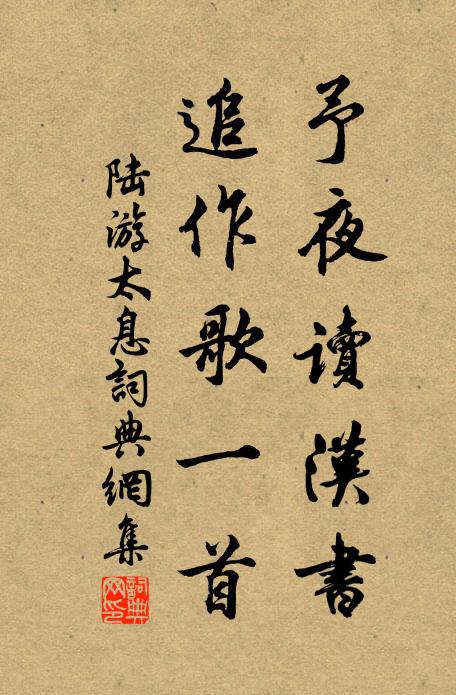 予夜讀漢書
追作歌一首
陆游太息詞典網集
詞典網印